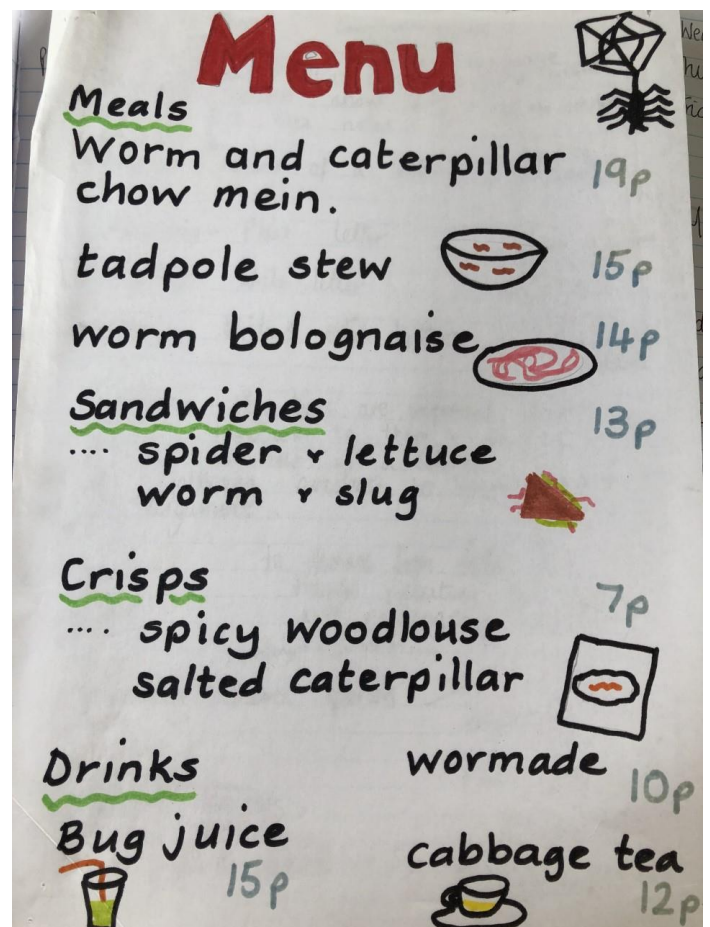 Menu
Meals
Worm and caterpillar 19p
chow mein.
tadpole stew 15p
worm bolognaise 14p
Sandwiches 13p
.... spider & lettuce
worm & slug
Crisps 7p
.... spicy woodlouse
salted caterpillar
Drinks
Bug juice
15p
wormade
10p
cabbage tea
12p